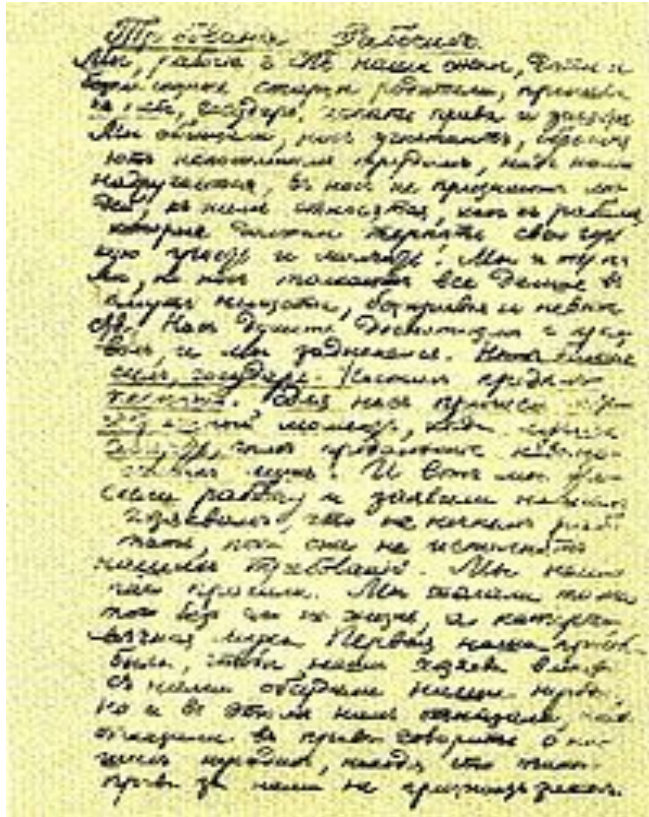 Требования Рабочихъ.
Мы, рабочіе наши жены, дѣти и
старцы родители, пришли
къ тебѣ, государь, искать правды и защиты
Мы обнищали, насъ угнетаютъ,
ютъ непосильнымъ трудомъ, надъ нами
надругаются, въ насъ не признаютъ лю
дей, къ намъ относятся, какъ къ рабамъ,
которые должны терпѣть свою горь
кую участь и молчать. Мы и терпѣ
ли, но насъ толкаютъ все дальше въ
омутъ нищеты, безправія и невѣже
ства. Насъ душитъ деспотизмъ и произ
волъ, и мы задыхаемся. Нѣтъ больше
силъ, государь. Насталъ предѣлъ
терпѣнію. Для насъ пришелъ
моментъ, когда лучше
смерть, чѣмъ продолженіе невыно
мукъ. И вотъ мы бро
сили работу и заявили нашимъ
хозяевамъ, что не начнемъ рабо
тать, пока они не исполнятъ
нашихъ требованій. Мы
просили. Мы желали только
того, безъ чего не жизнь, а каторга
вѣчная мука. Первая наша просьба
была, чтобы наши хозяева вмѣстѣ
съ нами обсудили наши нужды.
Но и въ этомъ намъ отказали, намъ
отказали въ правѣ говорить о на
шихъ нуждахъ, находя, что такого
права за нами не признаетъ законъ.